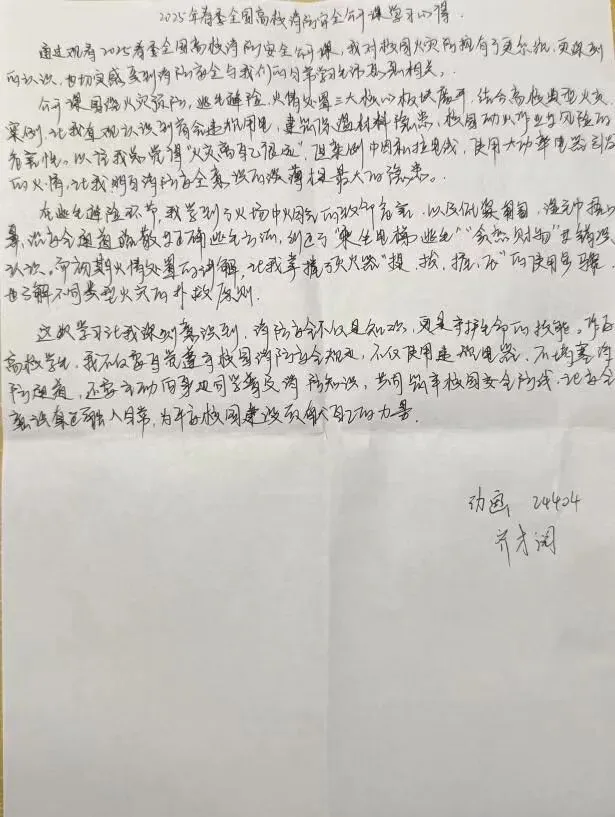 2025年春季全国高校消防安全公开课学习心得.
通过观看2025春季全国高校消防安全公开课，我对校园火灾防控有了更系统、更深刻
的认识，也切实感受到消防安全与我们的日常学习生活息息相关。
公开课围绕火灾预防、逃生避险、火情处置三大核心板块展开，结合高校典型火灾
案例，让我直观认识到宿舍违规用电，建筑保温材料隐患，校园动火作业等风险的
危害性。以往我总觉得“火灾离自己很远”，但案例中因私拉电线，使用大功率电器引发
的火情，让我明白消防安全意识的淡薄才是最大的隐患。
在逃生避险环节，我学到了火场中烟气的致命危害，以及低姿匍匐，湿毛巾捂口
鼻，沿安全通道疏散等正确逃生方法，纠正了“乘坐电梯逃生”“贪恋财物”等错误
认识。而初期火情处置的讲解，让我掌握了灭火器“提，拔，握，压”的使用步骤，
也了解不同类型火灾的扑救原则.
这次学习让我深刻意识到，消防安全不仅是知识，更是守护生命的技能。作为
高校学生，我不仅要自觉遵守校园消防安全规定，不仅使用违规电器，不堵塞消
防通道，还要主动向身边同学普及消防知识，共同筑牢校园安全防线，让安全
意识真正融入日常，为平安校园建设贡献自己的力量.
动画 24404